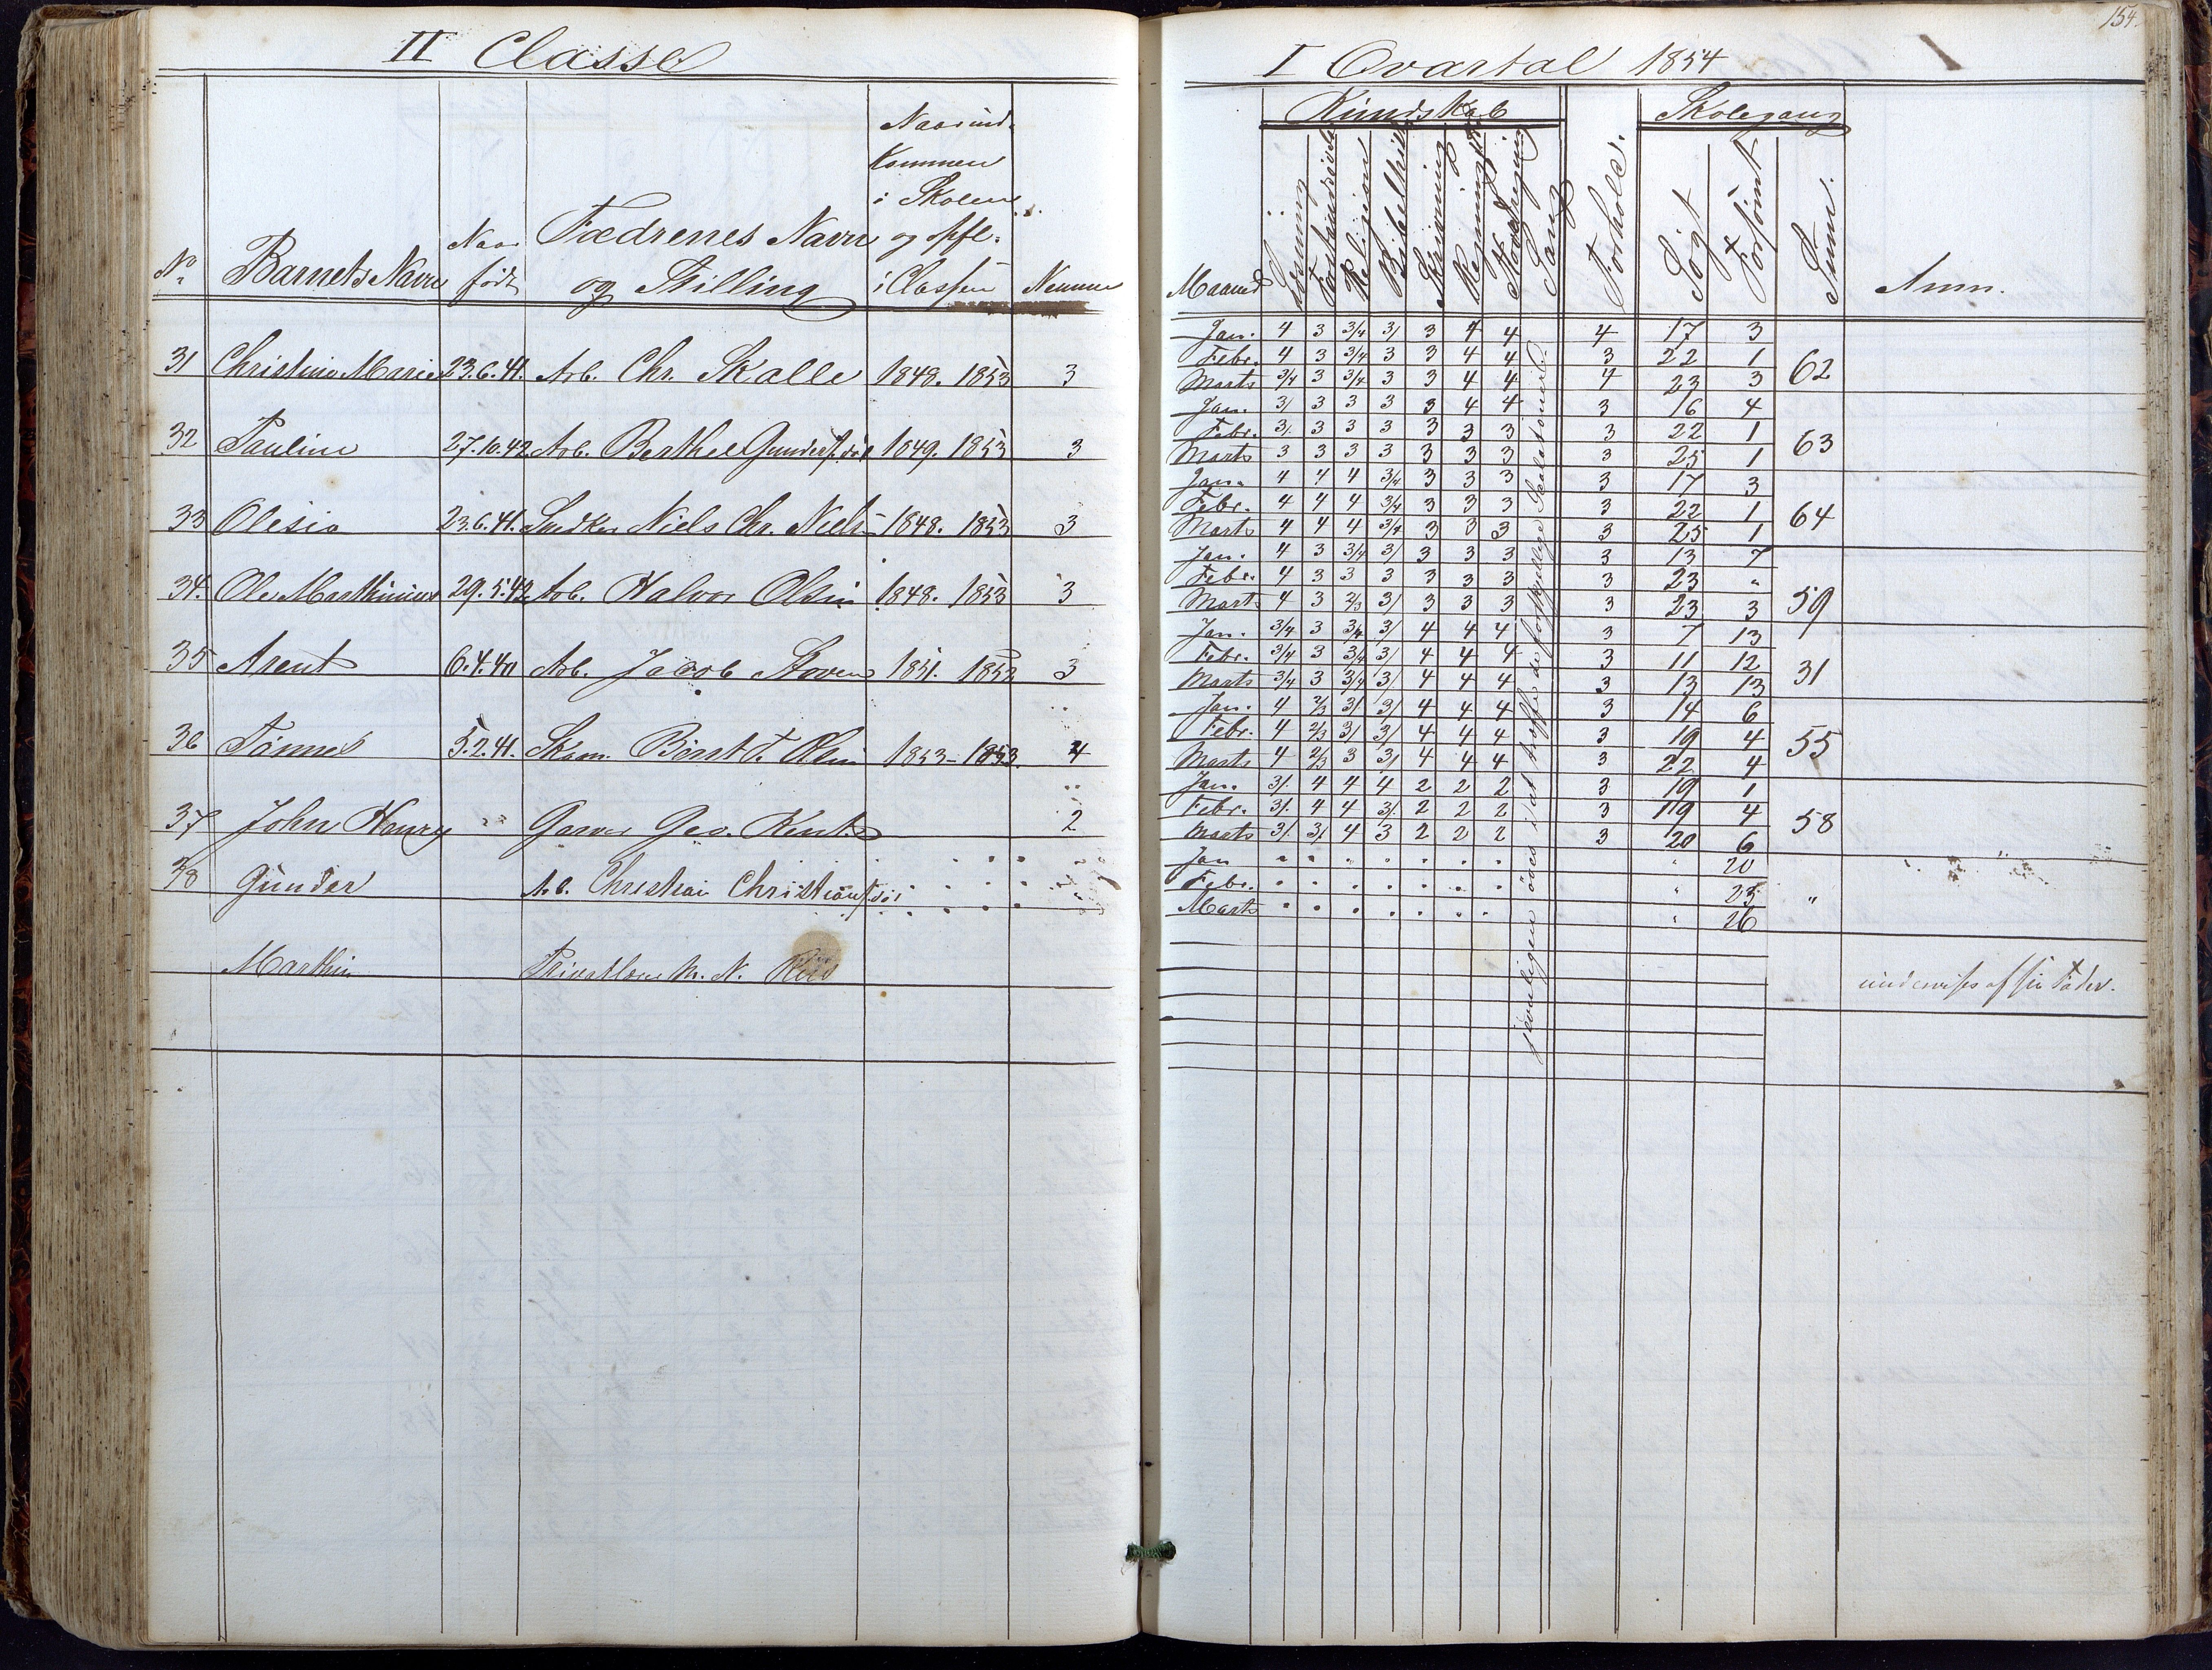 II Classe
No
Barnets Navn
Naar født
Fædrenes Navn og Stilling
Naar ind-
kommen
i Skolen
og opfl.
i Classen
Nemme
31 Christine Marie 23.6.41. Arb. Chr. Skalle 1848. 1853 3
32 Pauline 27.10.42 Arb. Berthel 1849. 1853 3
33 Olesia 23.6.41. Niels Chr. Niels 1848. 1853 3
34. Ole Marthinius 29.5.42 Arb. Halvor Olsen 1848. 1853 3
35 Arent 6.4.40 Arb. Jacob 1851. 1853 3
36 Tønnes 5.2.41. 1853 - 1853. 4
37 John Henry " Garver Geo. Kent 2
38 Gunder Arb. Christian
Marthin N. N.
154.
I Qvartal 1854
Kundskab
Skolegang
Maaned
Læsning
Religion
Skrivning
Sang
Forhold.
Søgt
Forsømt
Sum.
Anm.
Jan. 4 3 3/4 3/ 3 4 4 4 17 3
Febr. 4 3 3/4 3 3 4 4 3 22 1 62
Marts 3/4 3 3/4 3 3 4 4 4 23 3
Jan. 3/ 3 3 3 3 4 4 3 16 4
Febr. 3/. 3 3 3 3 3 3 3 22 1 63
Marts 3 3 3 3 3 3 3 3 25 1
Jan. 4 4 4 3/4 3 3 3 3 17 3
Febr. 4 4 4 3/4 3 3 3 3 22 1 64
Marts 4 4 4 3/4 3 3 3 3 25 1
Jan. 4 3 3/4 3/ 3 3 3 3 13 7
Febr. 4 3 3 3 3 3 3 3 23 " 59
Marts 4 3 2/3 3/ 3 3 3 3 23 3
Jan. 3/4 3 3/4 3/ 4 4 4 3 7 13
Febr. 3/4 3 3/4 3/ 4 4 4 3 11 12 31
Marts 3/4 3 3/4 3/ 4 4 4 3 13 13
Jan. 4 2/3 3/ 3/ 4 4 4 3 14 6
Febr. 4 2/3 3/ 3/ 4 4 4 3 19 4 55
Marts 4 2/3 3 3/ 4 4 4 3 22 4
Jan. 3/. 4 4 4 2 2 2 3 19 1
Febr. 3/. 4 4 3/. 2 2 2 3 19 4 58
Marts 3/. 3/. 4 3 2 2 2 3 20 6
Jan " " " " " " " " 20
Febr. " " " " " " " " 23 "
Marts " " " " " " " " 26
jævnligen øves i at træffe de forskjellige
undervises af sin Fader.